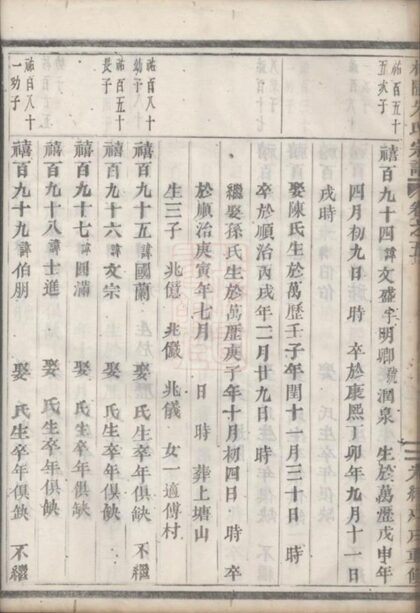 祐百五十
五次子
禧百九十四諱文盛字明卿號潤泉 生於萬歷戊申年
四月初九日 時 卒於康熙丁卯年九月十一日
戌時
娶陳氏生於萬歷壬子年閏十一月三十日 時
卒於順治丙戌年二月廿九日 時
繼娶孫氏生於萬歷庚子年十月初四日 時 卒
於順治庚寅年七月 日 時 葬上塘山
生三子 兆億 兆 兆儀 女一適傅村
祐百八十
幼子
禧百九十五諱國蘭 娶 氏生卒年俱缺 不繼
祐百五十
長子
禧百九十六諱文宗 娶 氏生卒年俱缺
禧百九十七諱圓滿 娶 氏生卒年俱缺
禧百九十八諱士進 娶 氏生卒年俱缺
祐百八十
一幼子
禧百九十九諱伯朋 娶 氏生卒年俱缺 不繼